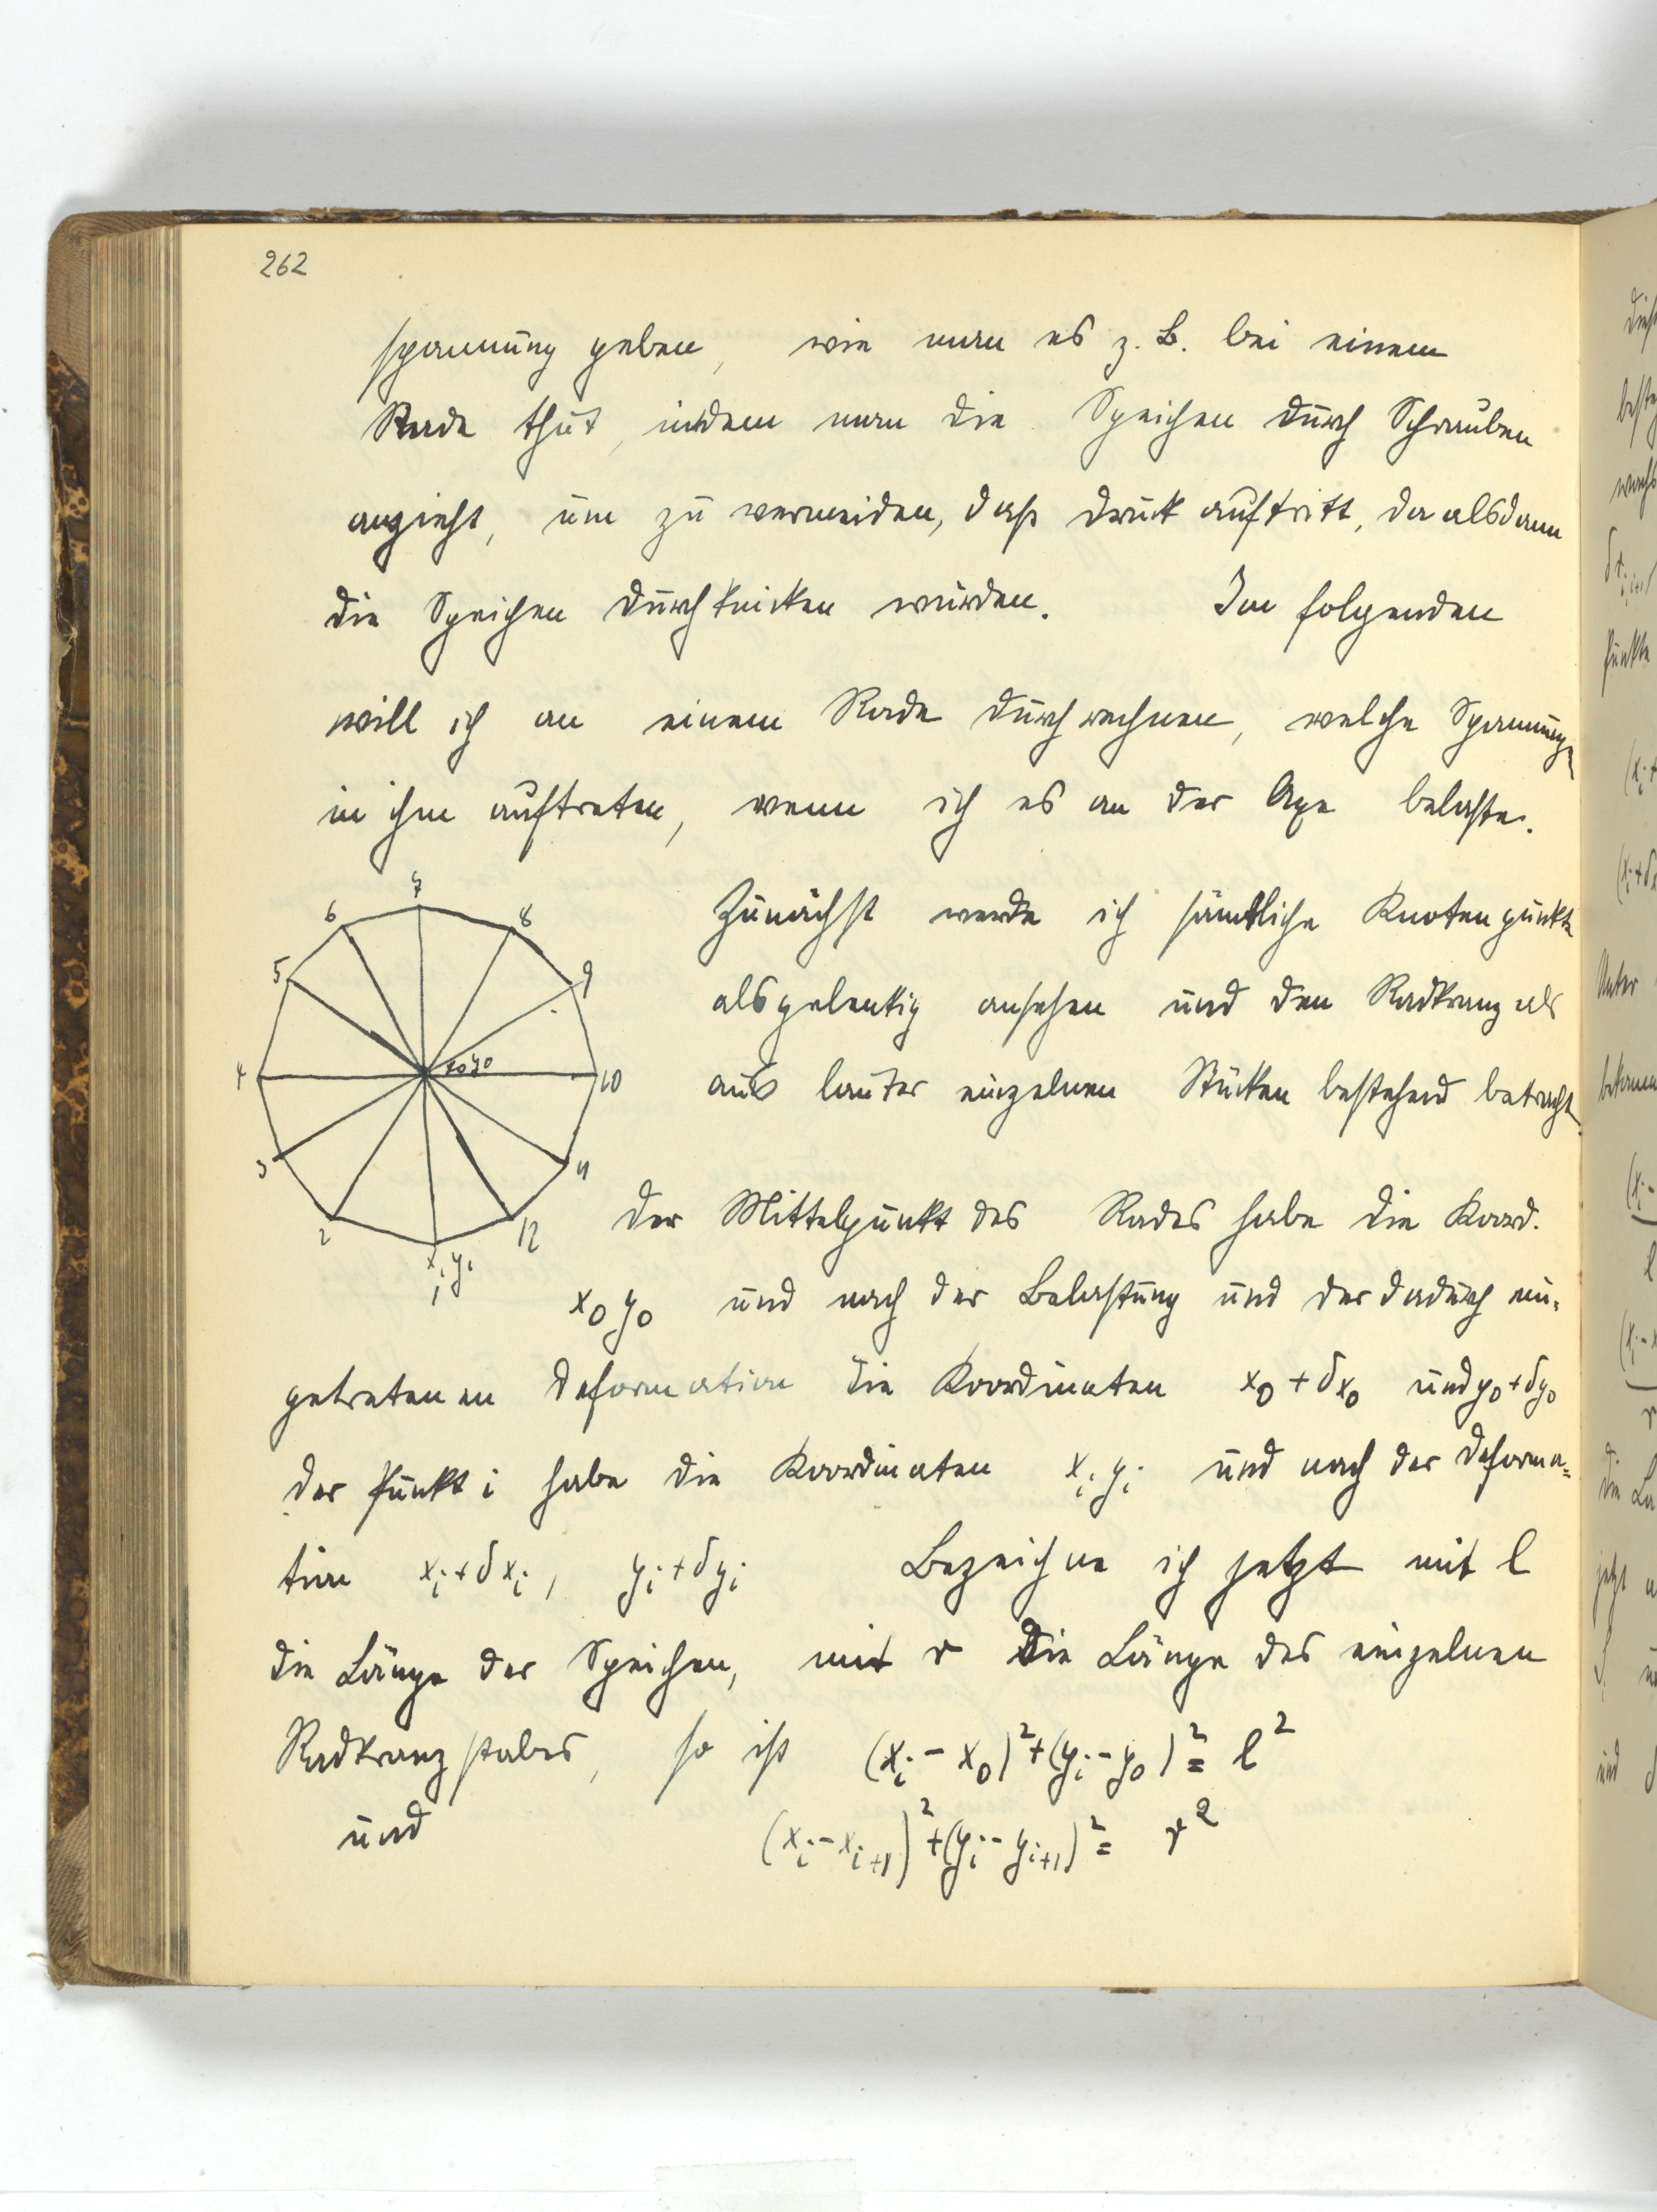 262
spannung geben, wie man es z. B. bei einem
Rade thut, indem man die Speichen durch Schrauben
anzieht, um zu vermeiden, daß Druck auftritt, da alsdann
die Speichen durchknicken würden. Im folgenden
will ich an einem Rade durchrechnen, welche Spannungen
in ihm auftreten, wenn ich es an der Axe belaste.
Zunächst werde ich sämtliche Knotenpunkte
als gelenkig ansehen und den Radkranz als
aus lauter einzelnen Stücken bestehend betracht.
7
6
8
5
9
x₀y₀
4
10
3
11
2
12
xᵢ yᵢ
1
Der Mittelpunkt des Rades habe die Koord.
x₀ y₀ und nach der Belastung und der dadurch ein-
getretenen Deformation die Koordinaten x₀ + δx₀ und y₀ + δy₀
Der Punkt i habe die Koordinaten xᵢ yᵢ und nach der Deforma=
tion xᵢ + δxᵢ, yᵢ + δyᵢ Bezeichne ich jetzt mit l
die Länge der Speichen, mit r die Länge des einzelnen
Radkranzstabes, so ist (xᵢ - x₀)² + (yᵢ - y₀)² = l²
und (xᵢ - xᵢ₊₁)² + (yᵢ - yᵢ₊₁)² = r²